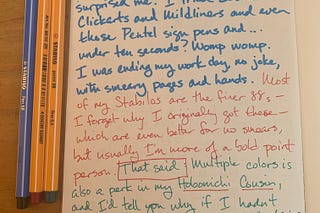 surprised me. I tried
Clickarts and Mildliners and even
those Pentel sign pens and...
under ten seconds? Womp womp.
I was ending my work day, no joke,
with smeary pages and hands. Most
of my Stabilos are the finer 88s –
I forget why I originally got these –
which are even better for no smears,
but usually I'm more of a bold point
person. That said! Multiple colors is
also a perk in my Hobonichi Cousin,
and I'd tell you why if I hadn't
STABILO
STABILO